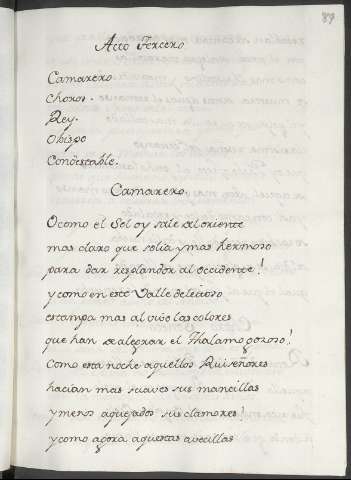 87
Acto Tercero
Camarero.
Choros.
Rey.
Obispo
Condestable.
Camarero.
O como el Sol oy sale al oriente
mas claro que solia y mas hermoso
para dar resplandor al occidente!
y como en este Valle deleitoso
estampa mas al vivo las colores
que han de alegrar el Thalamo gozoso!
Como esta noche aquellos Ruiseñores
hacian mas suaves sus mancillas
y menos aquejados sus clamores!
y como agora aquestas avecillas